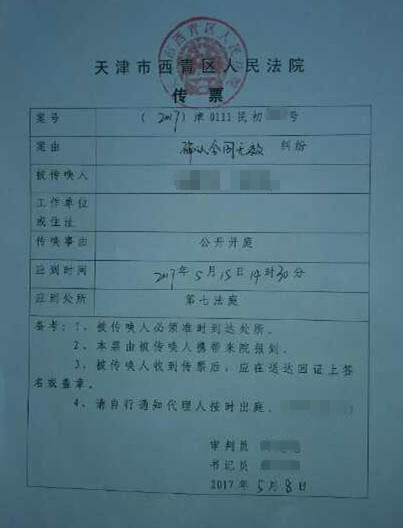 天津市西青区人民法院
传 票
案号 （2017）津0111民初 号
案由 确认合同无效 纠纷
被传唤人
工作单位
或住址
传唤事由 公开开庭
应到时间 2017年5月15日14时30分
应到处所 第七法庭
备考：1、被传唤人必须准时到达处所。
2、本票由被传唤人携带来院报到。
3、被传唤人收到传票后，应在送达回证上签
名或盖章。
4、请自行通知代理人按时出庭。
审判员
书记员
2017年5月8日